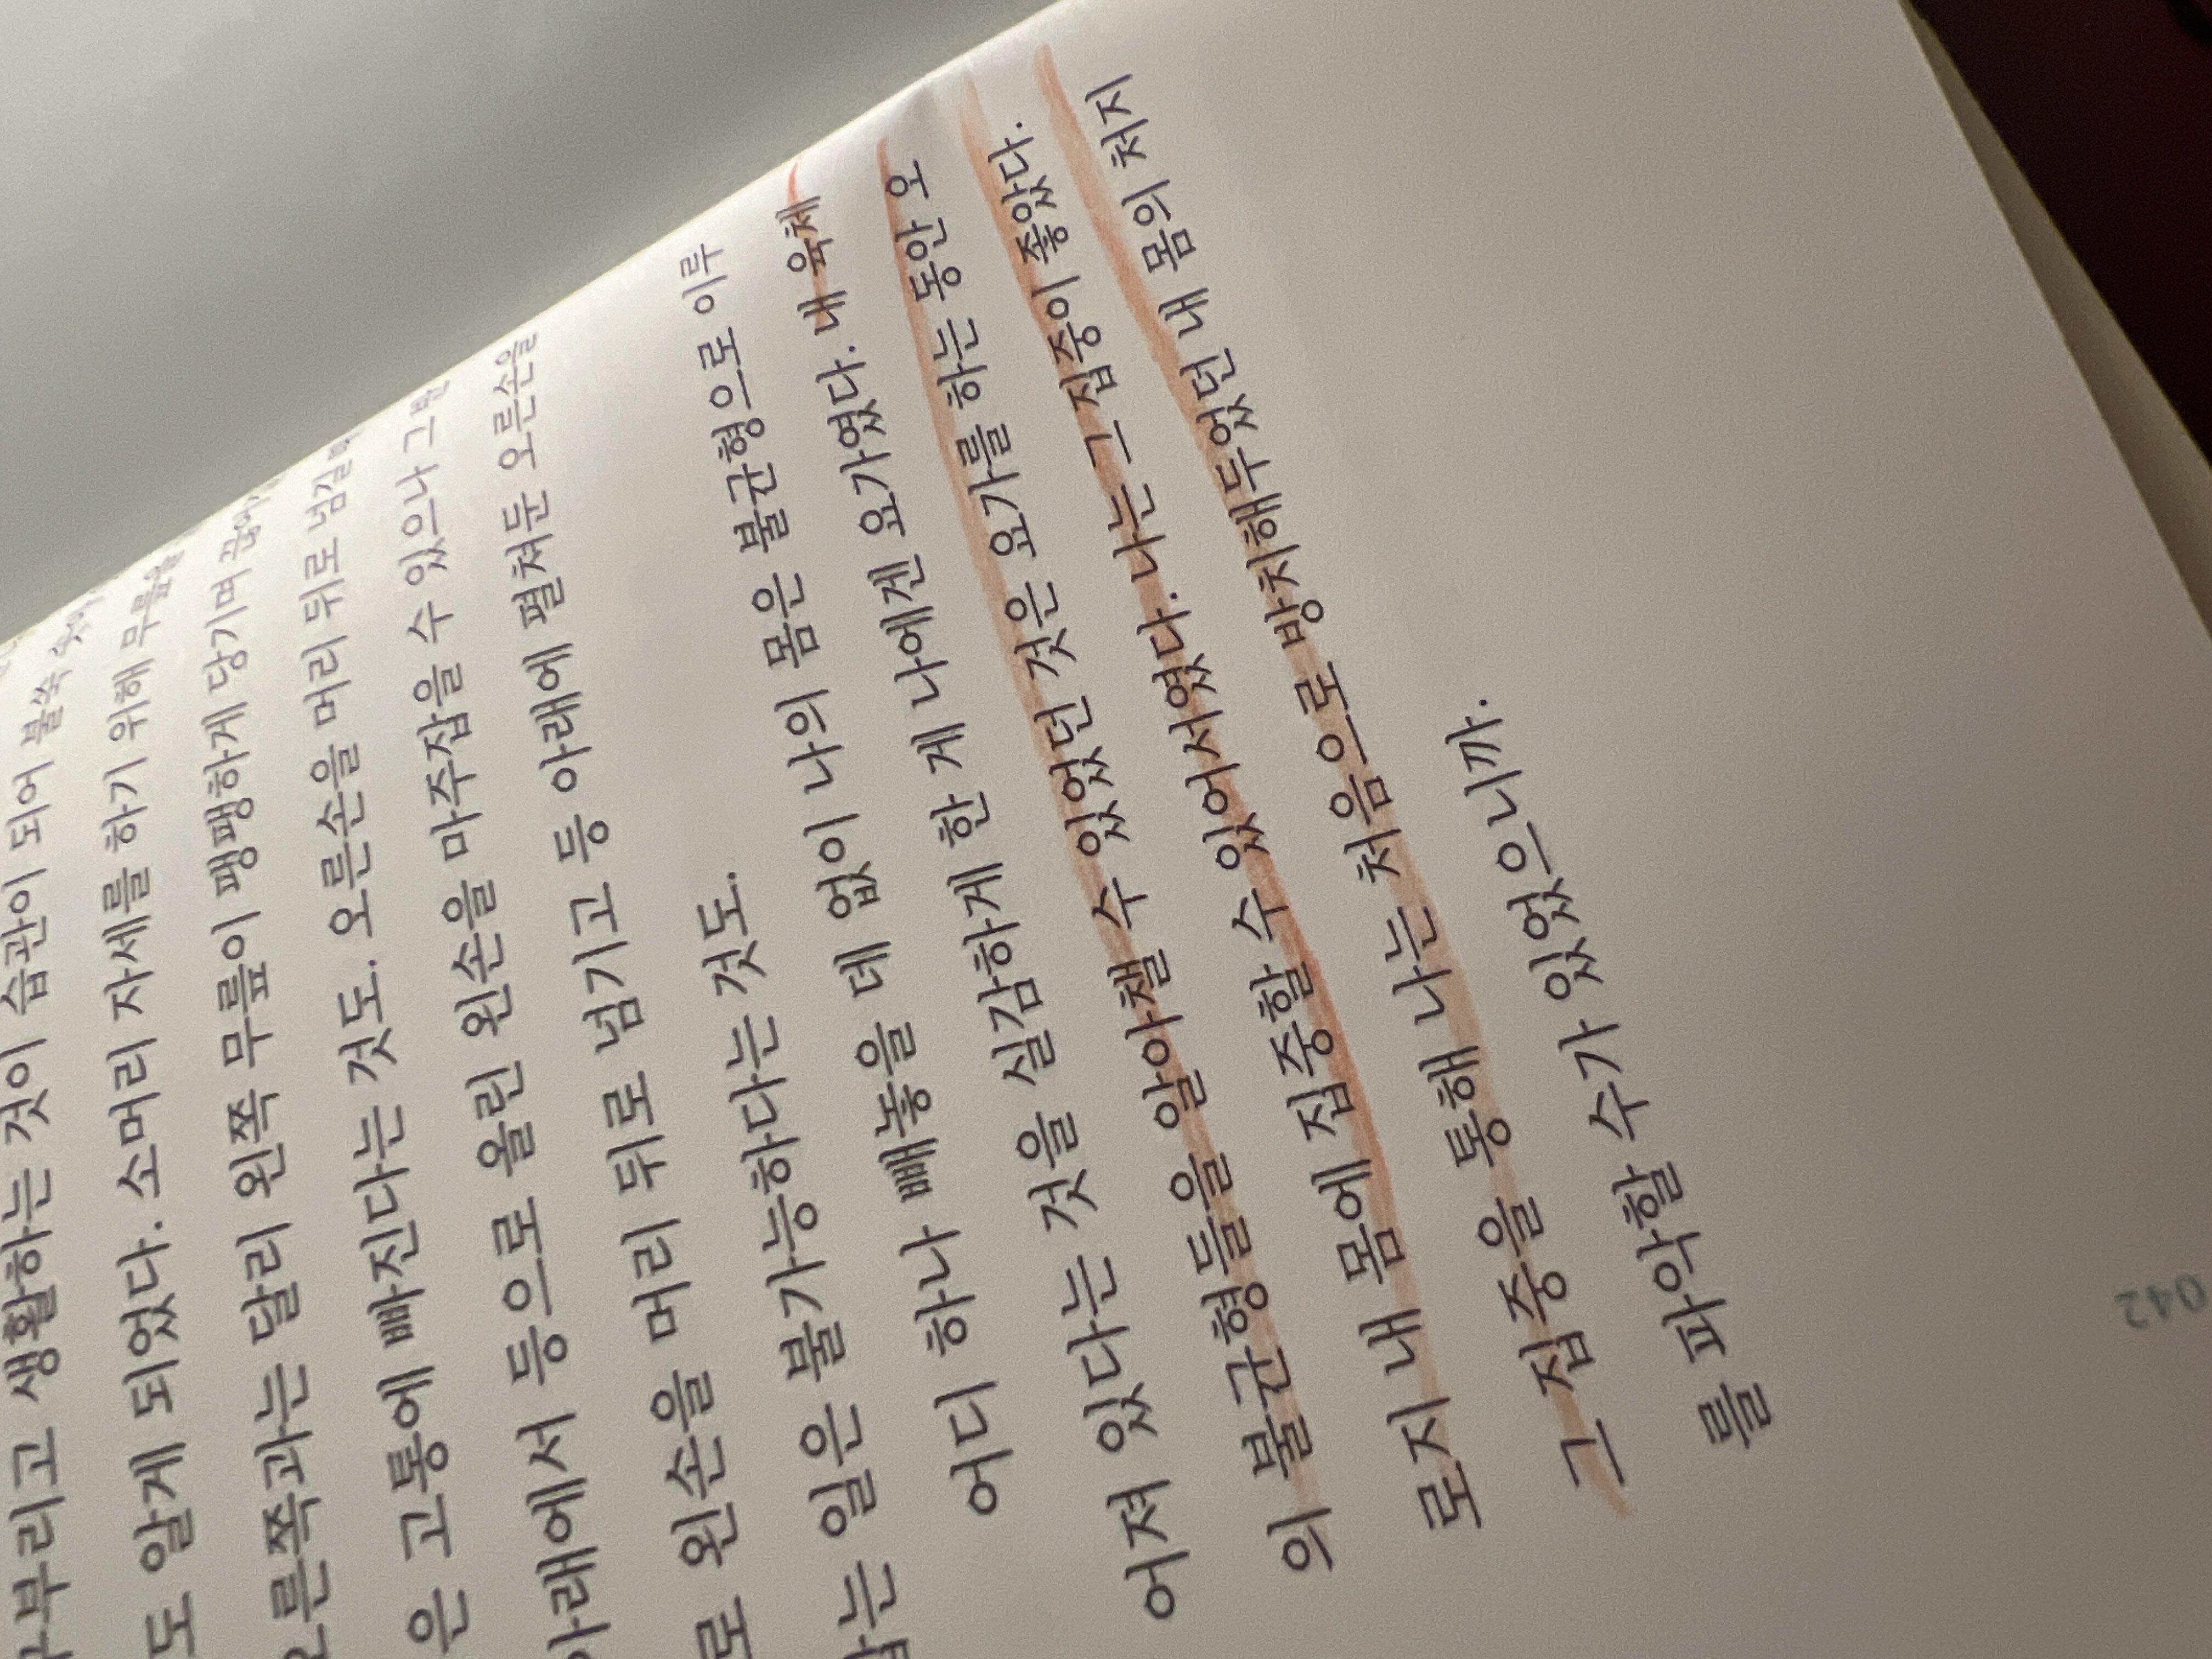 부리고 생활하는 것이 습관이 되어 불쑥
도 알게 되었다. 소머리 자세를 하기 위해 무릎을
오른쪽과는 달리 왼쪽 무릎이 팽팽하게 당기며
은 고통에 빠진다는 것도. 오른손을 머리 뒤로 넘길
아래에서 등으로 올린 왼손을 마주잡을 수 있으나 그
로 왼손을 머리 뒤로 넘기고 등 아래에 펼쳐둔 오른손을
잡는 일은 불가능하다는 것도.
어디 하나 빼놓을 데 없이 나의 몸은 불균형으로 이루
어져 있다는 것을 실감하게 한 게 나에겐 요가였다. 내 육체
의 불균형들을 알아챌 수 있었던 것은 요가를 하는 동안 오
로지 내 몸에 집중할 수 있어서였다. 나는 그 집중이 좋았다.
그 집중을 통해 나는 처음으로 방치해두었던 내 몸의 처지
를 파악할 수가 있었으니까.
042